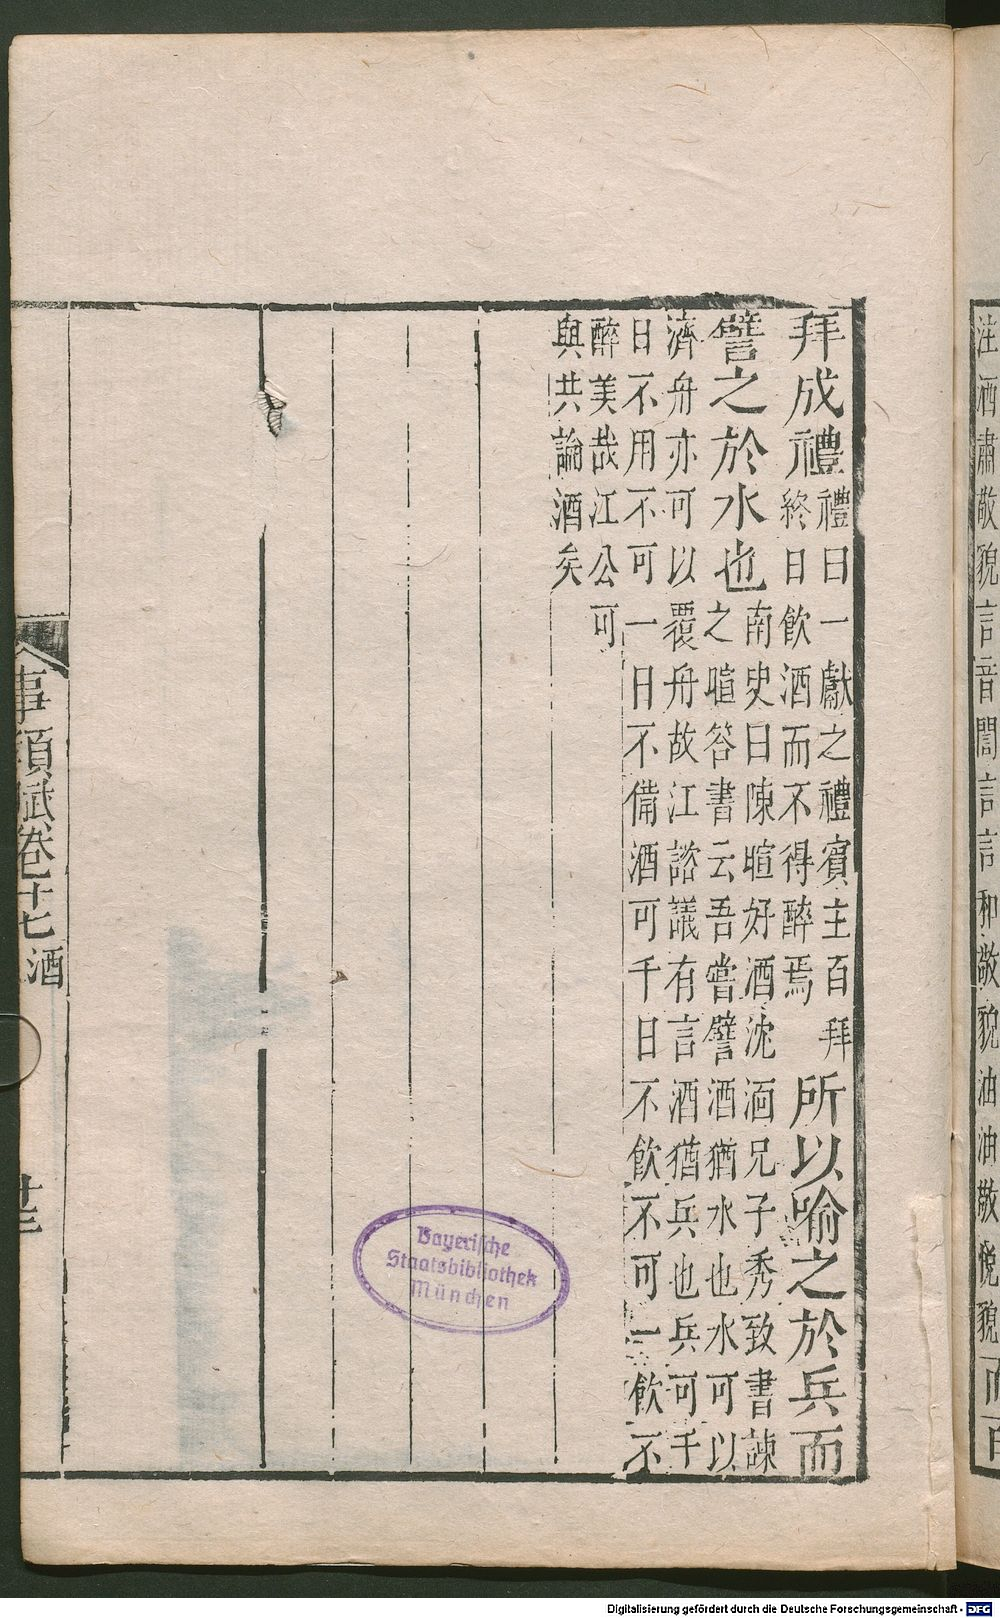 注洒肅敬貌言音誾言言和敬貌油油敬悅貌而百
拜成禮
禮曰一獻之禮賓主百拜
終日飲酒而不得醉焉
所以喻之於兵而
譬之於水也
南史曰陳暄好酒沈湎兄子秀致書諫
之暄答書云吾嘗譬酒猶水也水可以
濟舟亦可以覆舟故江諮議有言酒猶兵也兵可千
日不用不可一日不備酒可千日不飲不可一飲不
醉美哉江公可
與共論酒矣
事類賦卷十七 酒
廿三
Bayerische
Staatsbibliothek
München
Digitalisierung gefördert durch die Deutsche Forschungsgemeinschaft - DFG